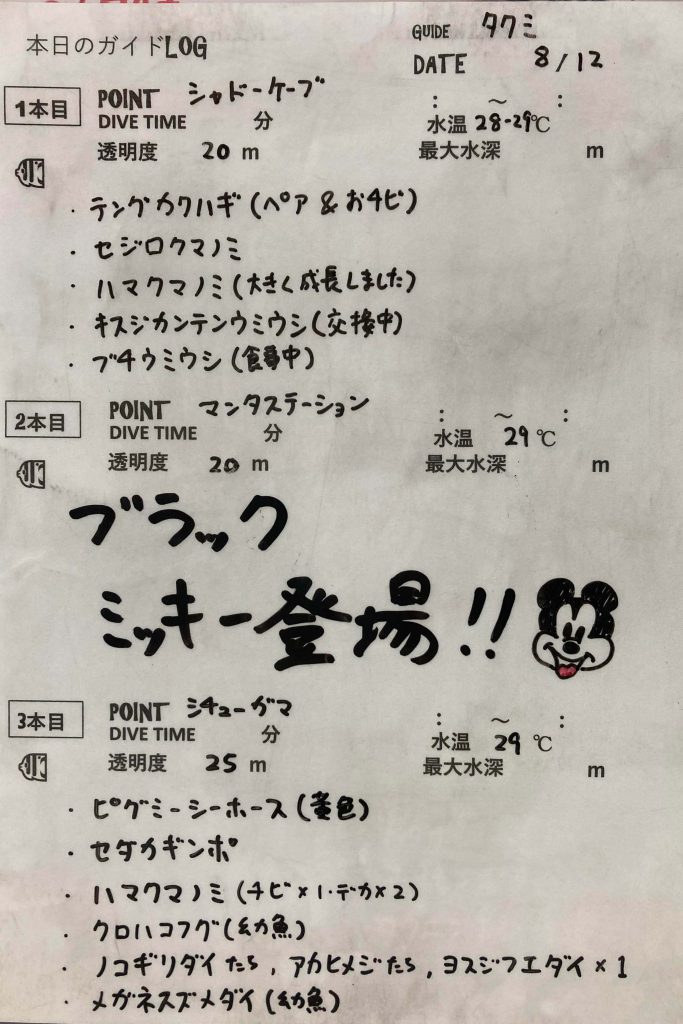 本日のガイドLOG
GUIDE タクミ
DATE 8/12
1本目 POINT シャドーケーブ
DIVE TIME 分 : ～ :
水温 28-29℃
透明度 20 m 最大水深 m
・テングカワハギ(ペア&おチビ)
・セジロクマノミ
・ハマクマノミ(大きく成長しました)
・キスジカンテンウミウシ(交接中)
・ブチウミウシ(食事中)
2本目 POINT マンタステーション
DIVE TIME 分 : ～ :
水温 29℃
透明度 20 m 最大水深 m
ブラック
ミッキー登場!!
3本目 POINT シチューガマ
DIVE TIME 分 : ～ :
水温 29℃
透明度 25 m 最大水深 m
・ピグミーシーホース(黄色)
・セダカギンポ
・ハマクマノミ(チビ×1・デカ×2)
・クロハコフグ(幼魚)
・ノコギリダイたち,アカヒメジたち,ヨスジフエダイ×1
・メガネスズメダイ(幼魚)